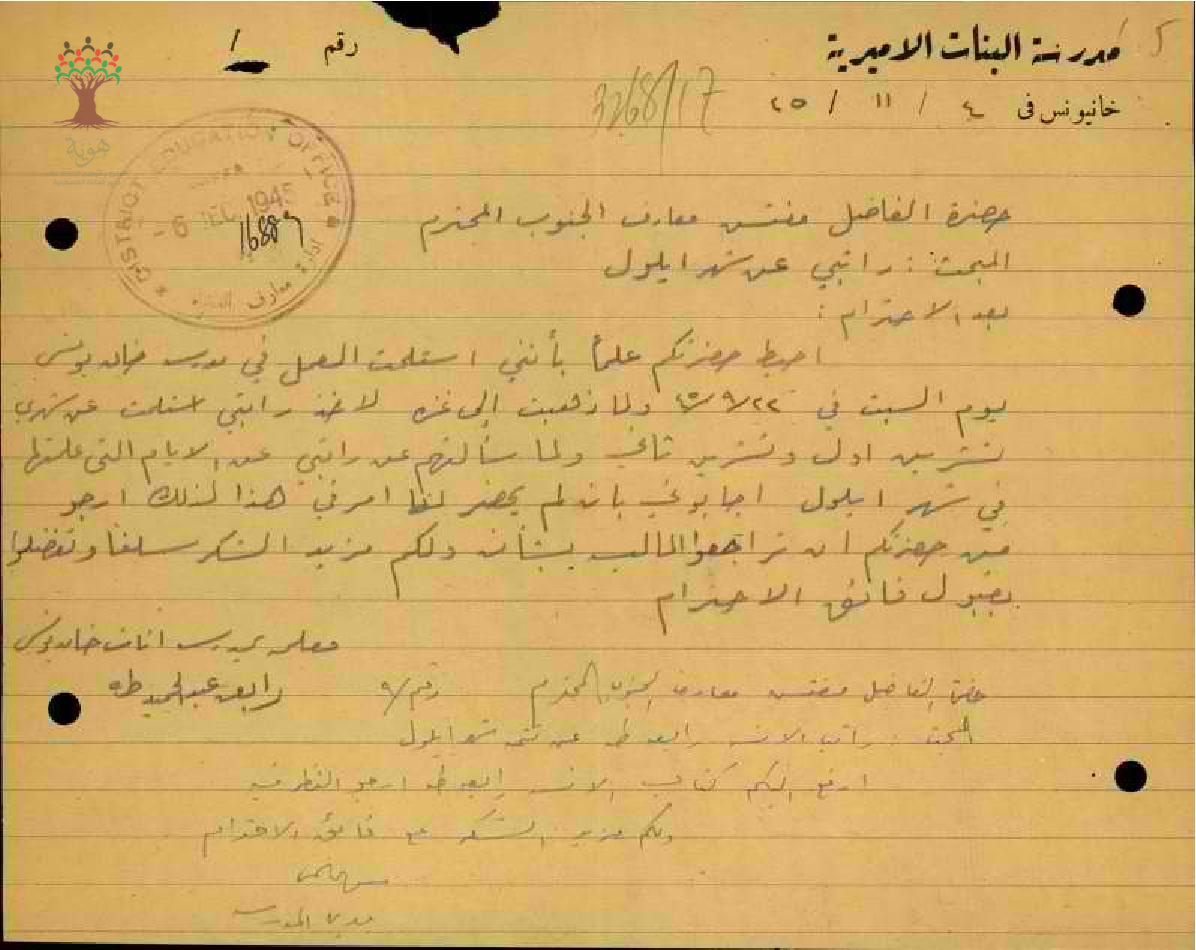 مدرسة البنات الاميرية
رقم /
خانيونس في ٤ / ١١ / ٤٥
3268/17
DISTRICT EDUCATION OFFICE
- 6 DEC 1945
16889
معارف
هوية
حضرة الفاضل مفتش معارف الجنوب المحترم
المبحث : راتبي عن شهر ايلول
بعد الاحترام :
احيط حضرتكم علماً بأنني استلمت العمل في مدرسة خان يونس
يوم السبت في ٤٥/٩/٢٢ ولما ذهبت إلى غزه لاخذ راتبي استلمت عن شهري
تشرين اول وتشرين ثاني ولما سألتهم عن راتبي عن الايام التي علمتها
في شهر ايلول اجابوني بان لم يحضر لنا امر في هذا لذلك ارجو
من حضرتكم ان تراجعوا المالية بشأنه ولكم مزيد الشكر سلفاً وتفضلوا
بقبول فائق الاحترام
معلمه بمدرسة اناث خان يونس
رابعه عبد الحميد طه
حضرة الفاضل مفتش معارف الجنوب المحترم رقم ٩/
المبحث : راتب الانسه رابعه طه عن شهر ايلول
ارفع اليكم كتاب الانسه رابعه طه ارجو النظر فيه
ولكم مزيد الشكر مع فائق الاحترام
مديرة المدرسة